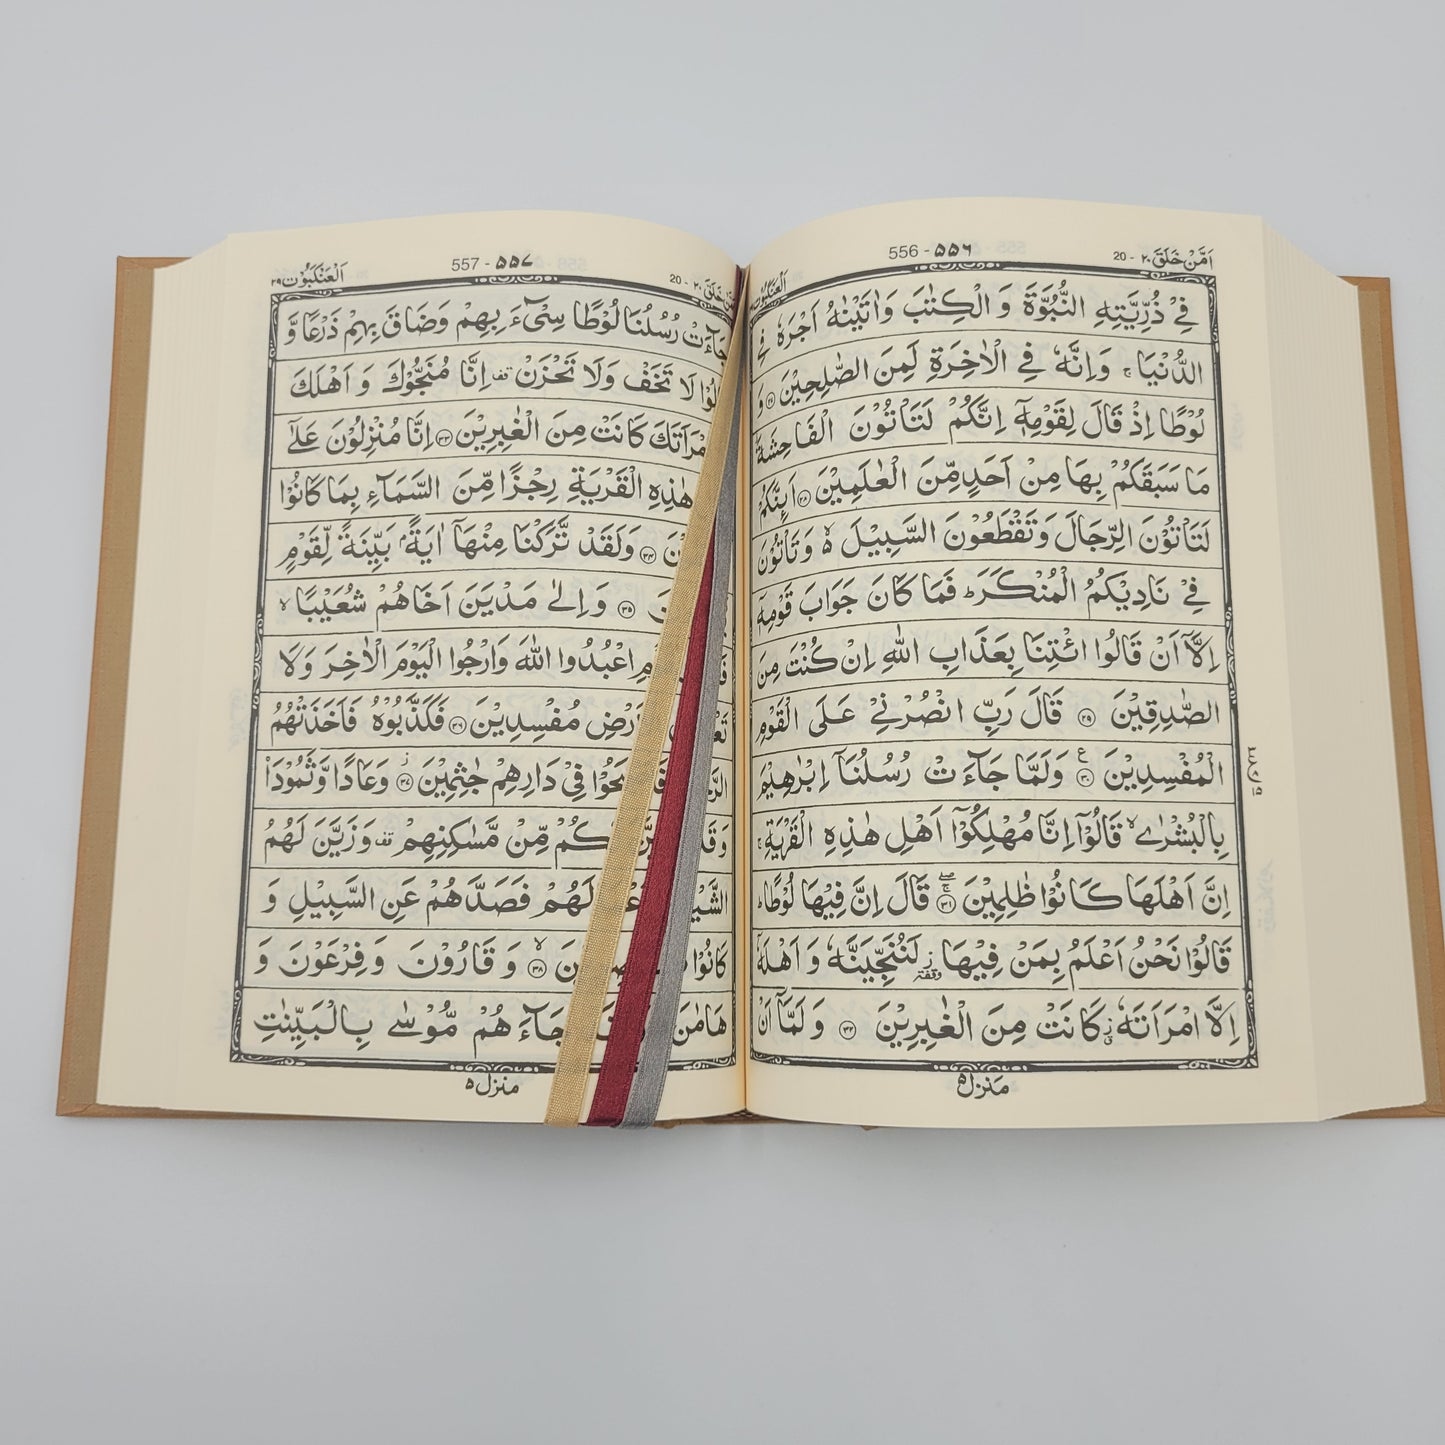 اَمَّنْ خَلَقَ ٢٠ - 20
556 - ۵۵۶
اَلْعَنْكَبُوْت
فِيْ ذُرِّيَّتِهِ النُّبُوَّةَ وَ الْكِتٰبَ وَاٰتَيْنٰهُ اَجْرَهٗ فِي
الدُّنْيَا ۚ وَاِنَّهٗ فِي الْاٰخِرَةِ لَمِنَ الصّٰلِحِيْنَ ﴿۲۷﴾ وَ
لُوْطًا اِذْ قَالَ لِقَوْمِهٖٓ اِنَّكُمْ لَتَاْتُوْنَ الْفَاحِشَةَ
مَا سَبَقَكُمْ بِهَا مِنْ اَحَدٍ مِّنَ الْعٰلَمِيْنَ ﴿۲۸﴾ اَئِنَّكُمْ
لَتَاْتُوْنَ الرِّجَالَ وَتَقْطَعُوْنَ السَّبِيْلَ ۙ وَتَاْتُوْنَ
فِيْ نَادِيْكُمُ الْمُنْكَرَ ؕ فَمَا كَانَ جَوَابَ قَوْمِهٖٓ
اِلَّآ اَنْ قَالُوا ائْتِنَا بِعَذَابِ اللّٰهِ اِنْ كُنْتَ مِنَ
الصّٰدِقِيْنَ ﴿۲۹﴾ قَالَ رَبِّ انْصُرْنِيْ عَلَى الْقَوْمِ
الْمُفْسِدِيْنَ ﴿۳۰﴾ وَلَمَّا جَآءَتْ رُسُلُنَآ اِبْرٰهِيْمَ
بِالْبُشْرٰى ۙ قَالُوْٓا اِنَّا مُهْلِكُوْٓا اَهْلِ هٰذِهِ الْقَرْيَةِ ۚ
اِنَّ اَهْلَهَا كَانُوْا ظٰلِمِيْنَ ﴿۳۱﴾ قَالَ اِنَّ فِيْهَا لُوْطًا ؕ
قَالُوْا نَحْنُ اَعْلَمُ بِمَنْ فِيْهَا ز وقفة لَنُنَجِّيَنَّهٗ وَ اَهْلَهٗٓ
اِلَّا امْرَاَتَهٗ ز كَانَتْ مِنَ الْغٰبِرِيْنَ ﴿۳۲﴾ وَ لَمَّآ اَنْ
مَنزِل ۵
خَلَقَ ٢٠ - 20
557 - ۵۵۷
اَلْعَنْكَبُوْت ۲۹
جَآءَتْ رُسُلُنَا لُوْطًا سِيْٓءَ بِهِمْ وَضَاقَ بِهِمْ ذَرْعًا وَّ
لَا تَخَفْ وَلَا تَحْزَنْ قف اِنَّا مُنَجُّوْكَ وَ اَهْلَكَ
كَانَتْ مِنَ الْغٰبِرِيْنَ ﴿۳۳﴾ اِنَّا مُنْزِلُوْنَ عَلٰٓى
هٰذِهِ الْقَرْيَةِ رِجْزًا مِّنَ السَّمَآءِ بِمَا كَانُوْا
﴿۳۴﴾ وَلَقَدْ تَّرَكْنَا مِنْهَآ اٰيَةًۢ بَيِّنَةً لِّقَوْمٍ
﴿۳۵﴾ وَ اِلٰى مَدْيَنَ اَخَاهُمْ شُعَيْبًا ۙ
اعْبُدُوا اللّٰهَ وَارْجُوا الْيَوْمَ الْاٰخِرَ وَلَا
مُفْسِدِيْنَ ﴿۳۶﴾ فَكَذَّبُوْهُ فَاَخَذَتْهُمُ
فِيْ دَارِهِمْ جٰثِمِيْنَ ﴿۳۷﴾ وَعَادًا وَّثَمُوْدَا۟
مِّنْ مَّسٰكِنِهِمْ قف وَزَيَّنَ لَهُمُ
لَهُمْ فَصَدَّهُمْ عَنِ السَّبِيْلِ وَ
كَانُوْا ﴿۳۸﴾ وَ قَارُوْنَ وَ فِرْعَوْنَ وَ
هَامٰنَ جَآءَهُمْ مُّوْسٰى بِالْبَيِّنٰتِ
منزل ۵